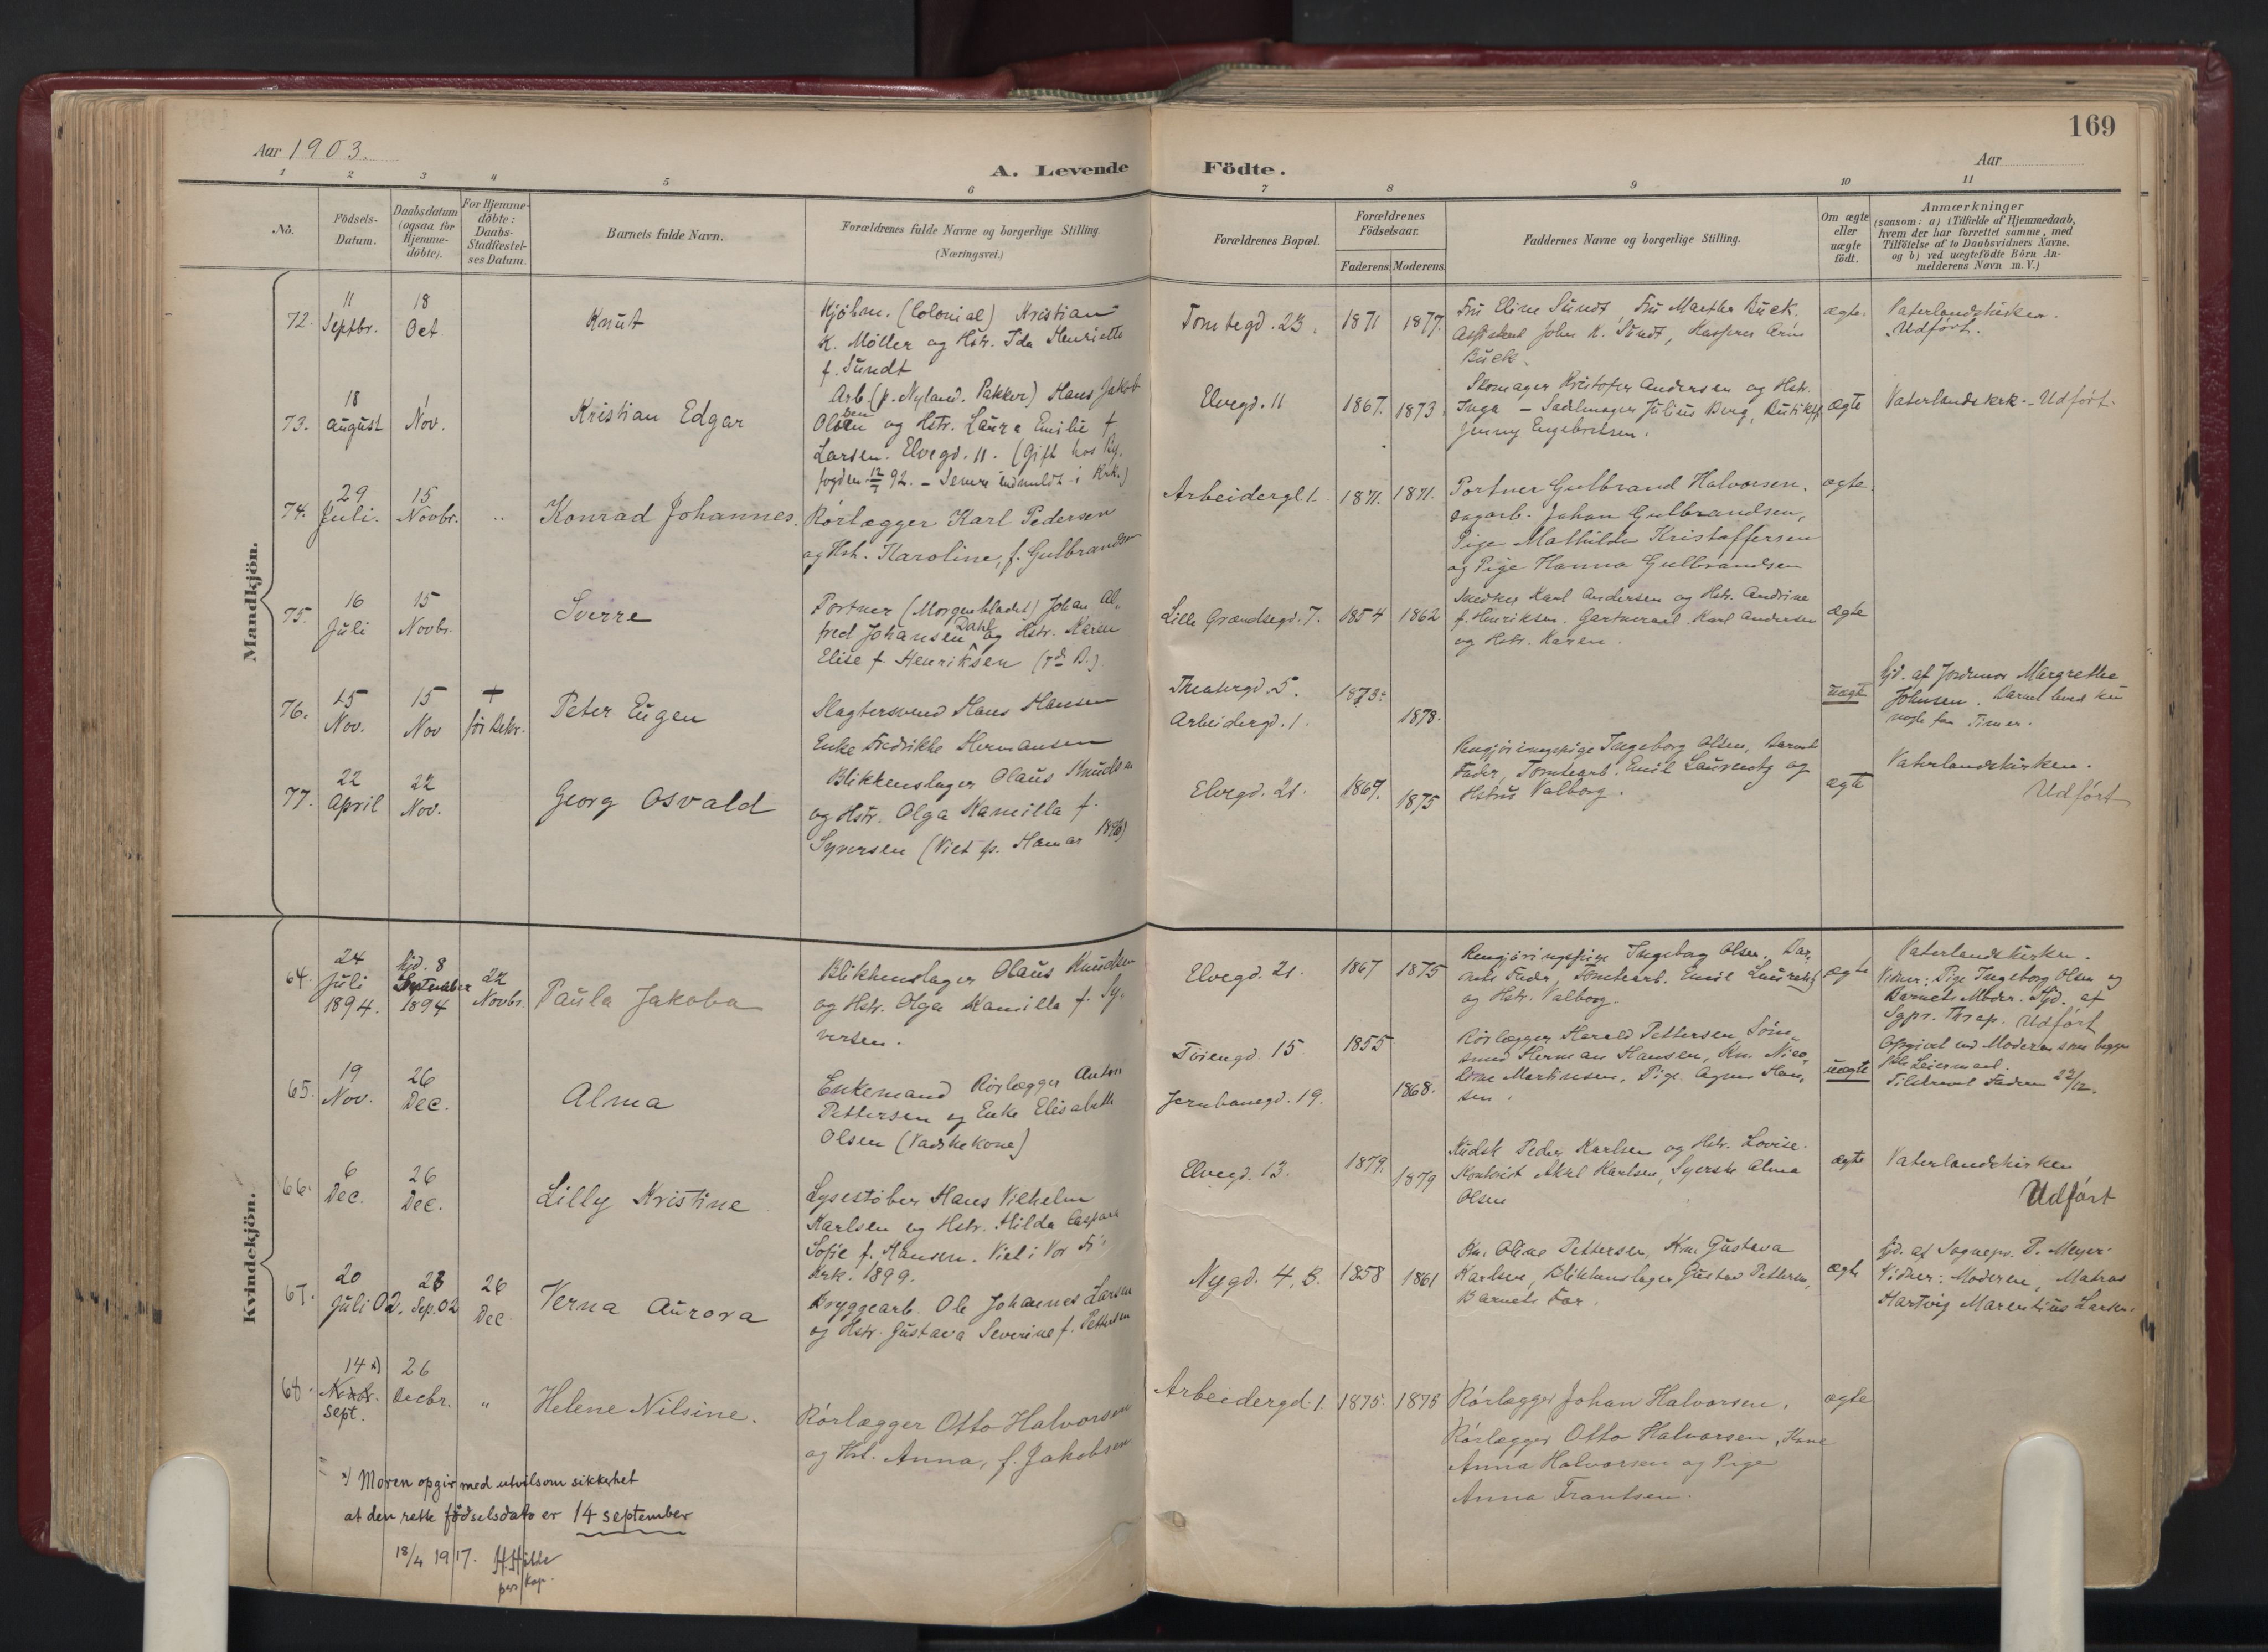 169
Aar 1903.
Aar
A. Levende Födte.
1 2 3 4 5 6 7 8 9 10 11
No.
Födsels-Datum.
Daabsdatum (ogsaa for Hjemme-döbte).
For Hjemme-döbte: Daabs-Stadfæstel-ses Datum.
Barnets fulde Navn.
Forældrenes fulde Navne og borgerlige Stilling.
(Næringsvei.)
Forældrenes Bopæl.
Forældrenes Födselsaar.
Faderens. Moderens.
Faddernes Navne og borgerlige Stilling.
Om ægte eller uægte födt.
Anmærkninger
(saasom: a) i Tilfælde af Hjemmedaab,
hvem der har forrettet samme, med
Tilföielse af to Daabsvidners Navne,
og b) ved uægtefödte Börn An-
melderens Navn m. V.)
Mandkjön.
72. 11 Septbr. 18 Oct
Knut
Kjøbm. (Colonial) Kristian
K. Möller og Hstr. Ida Henriette
f. Sundt
Tomtegd. 23. 1871 1877.
Fru Eline Sundt, Fru Marthe Buck.
Assistent John K. Sundt,
Buck
ægte.
Vaterlandskirken.
Udført.
73. 18 august 1 Nov.
Kristian Edgar
Arb. (p. Nyland. Pakker) Hans Jakob
Olsen og Hstr. Laura Emilie f.
Larsen. Elvegd. 11. (Gift hos By-
fogden 12/7 92. – Senere indmeldt i Krk.)
Elvegd. 11 1867. 1873
Skomager Kristofer Andersen og Hstr.
Inga – Sadelmager Julius Berg,
Jenny Engebretsen.
ægte
Vaterlands krk. - Udført.
74. 29 Juli. 15 Novbr. "
Konrad Johannes.
Rørlægger Karl Pedersen
og Hst. Karoline, f. Gulbrandsen
Arbeidergd. 1. 1871. 1871.
Portner Gulbrand Halvorsen.
Johan Gulbrandsen,
Pige Mathilde Kristoffersen
og Pige Hanna Gulbrandsen
ægte.
75. 16 Juli 15 Novbr.
Sverre
Portner (Morgenbladet) Johan Al-
fred Johansen Dahl og Hstr. Karen
Elise f. Henriksen (7de B.)
Lille Grændsegd. 7. 1854 1862
Snedker Karl Andersen og Hstr. Andrine
f. Henriksen. Karl Andersen
og Hstr. Karen.
ægte
76. 15 Nov. 15 Nov † før Bekr.
Peter Eugen
Slagtersvend Hans Hansen
Enke Fredrikke Hermansen
Theatergd. 5. 1873.
Arbeidergd. 1. 1878.
uægte
Hjd. af Jordmor Margrethe
Johnsen. Barnet leved kun
nogle faa Timer.
77. 22 April 22 Nov.
Georg Osvald
Blikkenslager Olaus Knudsen
og Hstr. Olga Kamilla f.
Syversen (Viet p. Hamar 1896)
Elvegd. 21. 1867. 1875
Rengjøringspige Ingeborg Olsen, Barnets
Fader, Tomtearb. Emil Laurentz og
Hstru Valborg.
ægte
Vaterlandskirken.
Udført
Kvindekjön.
64. 24 Juli 1894. hjd. 8 September 1894 22 Novbr.
Paula Jakoba
Blikkenslager Olaus Knudsen
og Hstr. Olga Kamilla f. Sy-
versen.
Elvegd. 21. 1867 1875
Rengjøringspige Ingeborg Olsen, Bar-
nets Fader, Tomtearb. Emil Laurentz
og Hstr. Valborg.
ægte
Vaterlandskirken.
Vidner: Pige Ingeborg Olsen og
Barnets Moder. Hjd. af
Sgpr. Thrap. Udført
65. 19 Nov. 26 Dec.
Alma
Enkemand Rørlægger Anton
Pettersen og Enke Elisabeth
Olsen (Vadskekone)
Tøiengd. 15. 1855
Jernbanegd. 19. 1868.
Rørlægger Harald Pettersen
Herman Hansen, Kn. Nico-
line Martinsen, Pige Agnes Han-
sen.
uægte
Opgivet ved Moderen som begges
Leiermaal.
Tilskrevet Faderen 22/12.
66. 6 Dec. 26 Dec.
Lilly Kristine
Lysestøber Hans Vilhelm
Karlsen og Hstr. Hilda Caspara
Sofie f. Hansen. Viet i Vor Fr.
krk. 1899.
Elvegd. 13. 1879. 1879
Kudsk Peder Karlsen og Hstr. Lovise.
Axel Karlsen, Syerske Alma
Olsen
ægte
Vaterlandskirken
Udført
67. 20 Juli 02. 28 Sep. 02 26 Dec.
Verna Aurora
Bryggearb. Ole Johannes Larsen
og Hstr. Gustava Severine f. Pettersen
Nygd. 4, B. 1858 1861
Kn. Oline Pettersen, Kn. Gustava
Karlsen, Blikkenslager Gustav Pettersen,
Barnets Far.
ægte
hjd. af Sognepr. P. Meyer.
Vidner: Moderen, Matros
Hartvig Marentius Larsen.
68. 14 x) Novbr. Sept. 26 Decbr. "
Helene Nilsine.
Rørlægger Otto Halvorsen
og Hst. Anna, f. Jakobsen
Arbeidergd. 1. 1875. 1875
Rørlægger Johan Halvorsen,
Rørlægger Otto Halvorsen, Kone
Anna Halvorsen og Pige
Anna Frantsen.
ægte
x) Moren opgir med utvilsom sikkerhet
at den rette fødselsdato er 14 september
18/4 1917.
pers. kap.